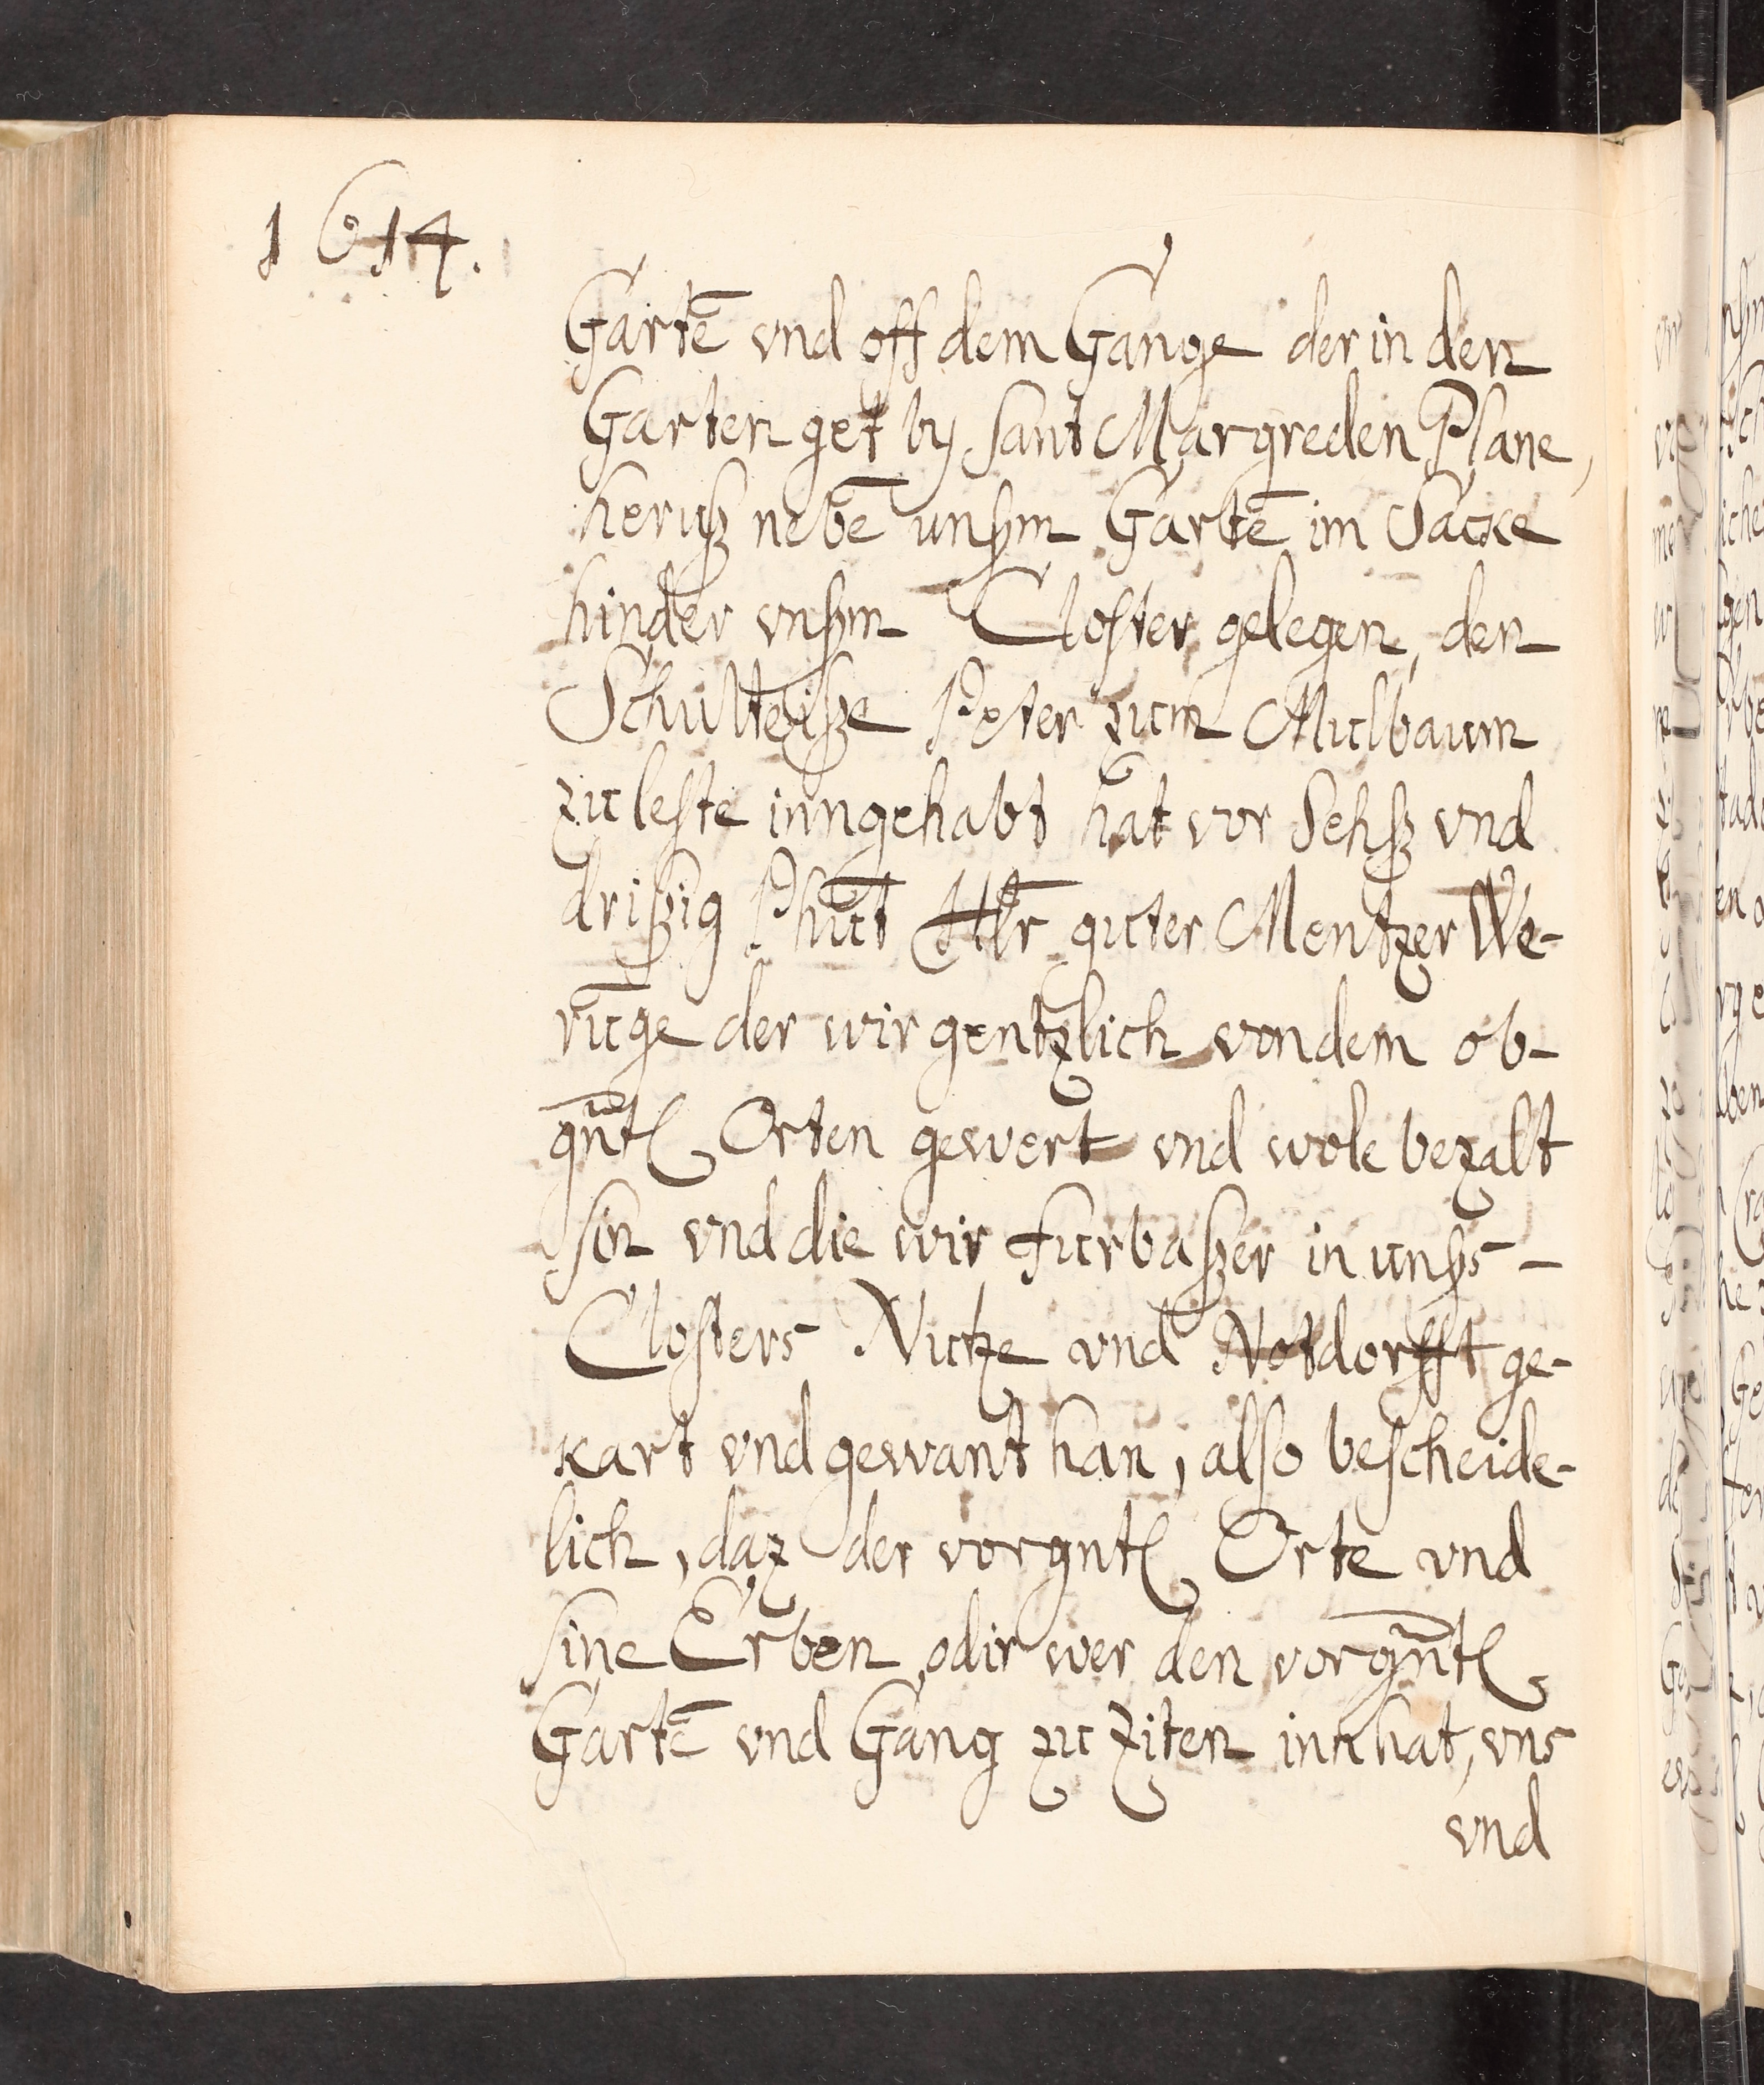 1614.
Gartē vnd off dem Gange der in den
Garten get by sant Margreden Plane,
heruß nebē unßm Gartē im Sacke
hinder vnßm Closter gelegen, den
Schulteiße Peter zum Mulbaum
zu leste inngehabt hat vor Sehß vnd
drißig Phūt Hlr guter Mentzer We-
rūge der wir gentzlich von dem ob-
gñt Orten gewert vnd wole bezalt
sin vnd die wir furbaßer in unßs
Closters Nutze vnd Notdorfft ge-
kart vnd gewant han, also bescheide-
lich, daz der vorgnt Orte vnd
sine Erben, odir wer den vorgñt
Gartē vnd Gang zu ziten inn hat, vns
vnd